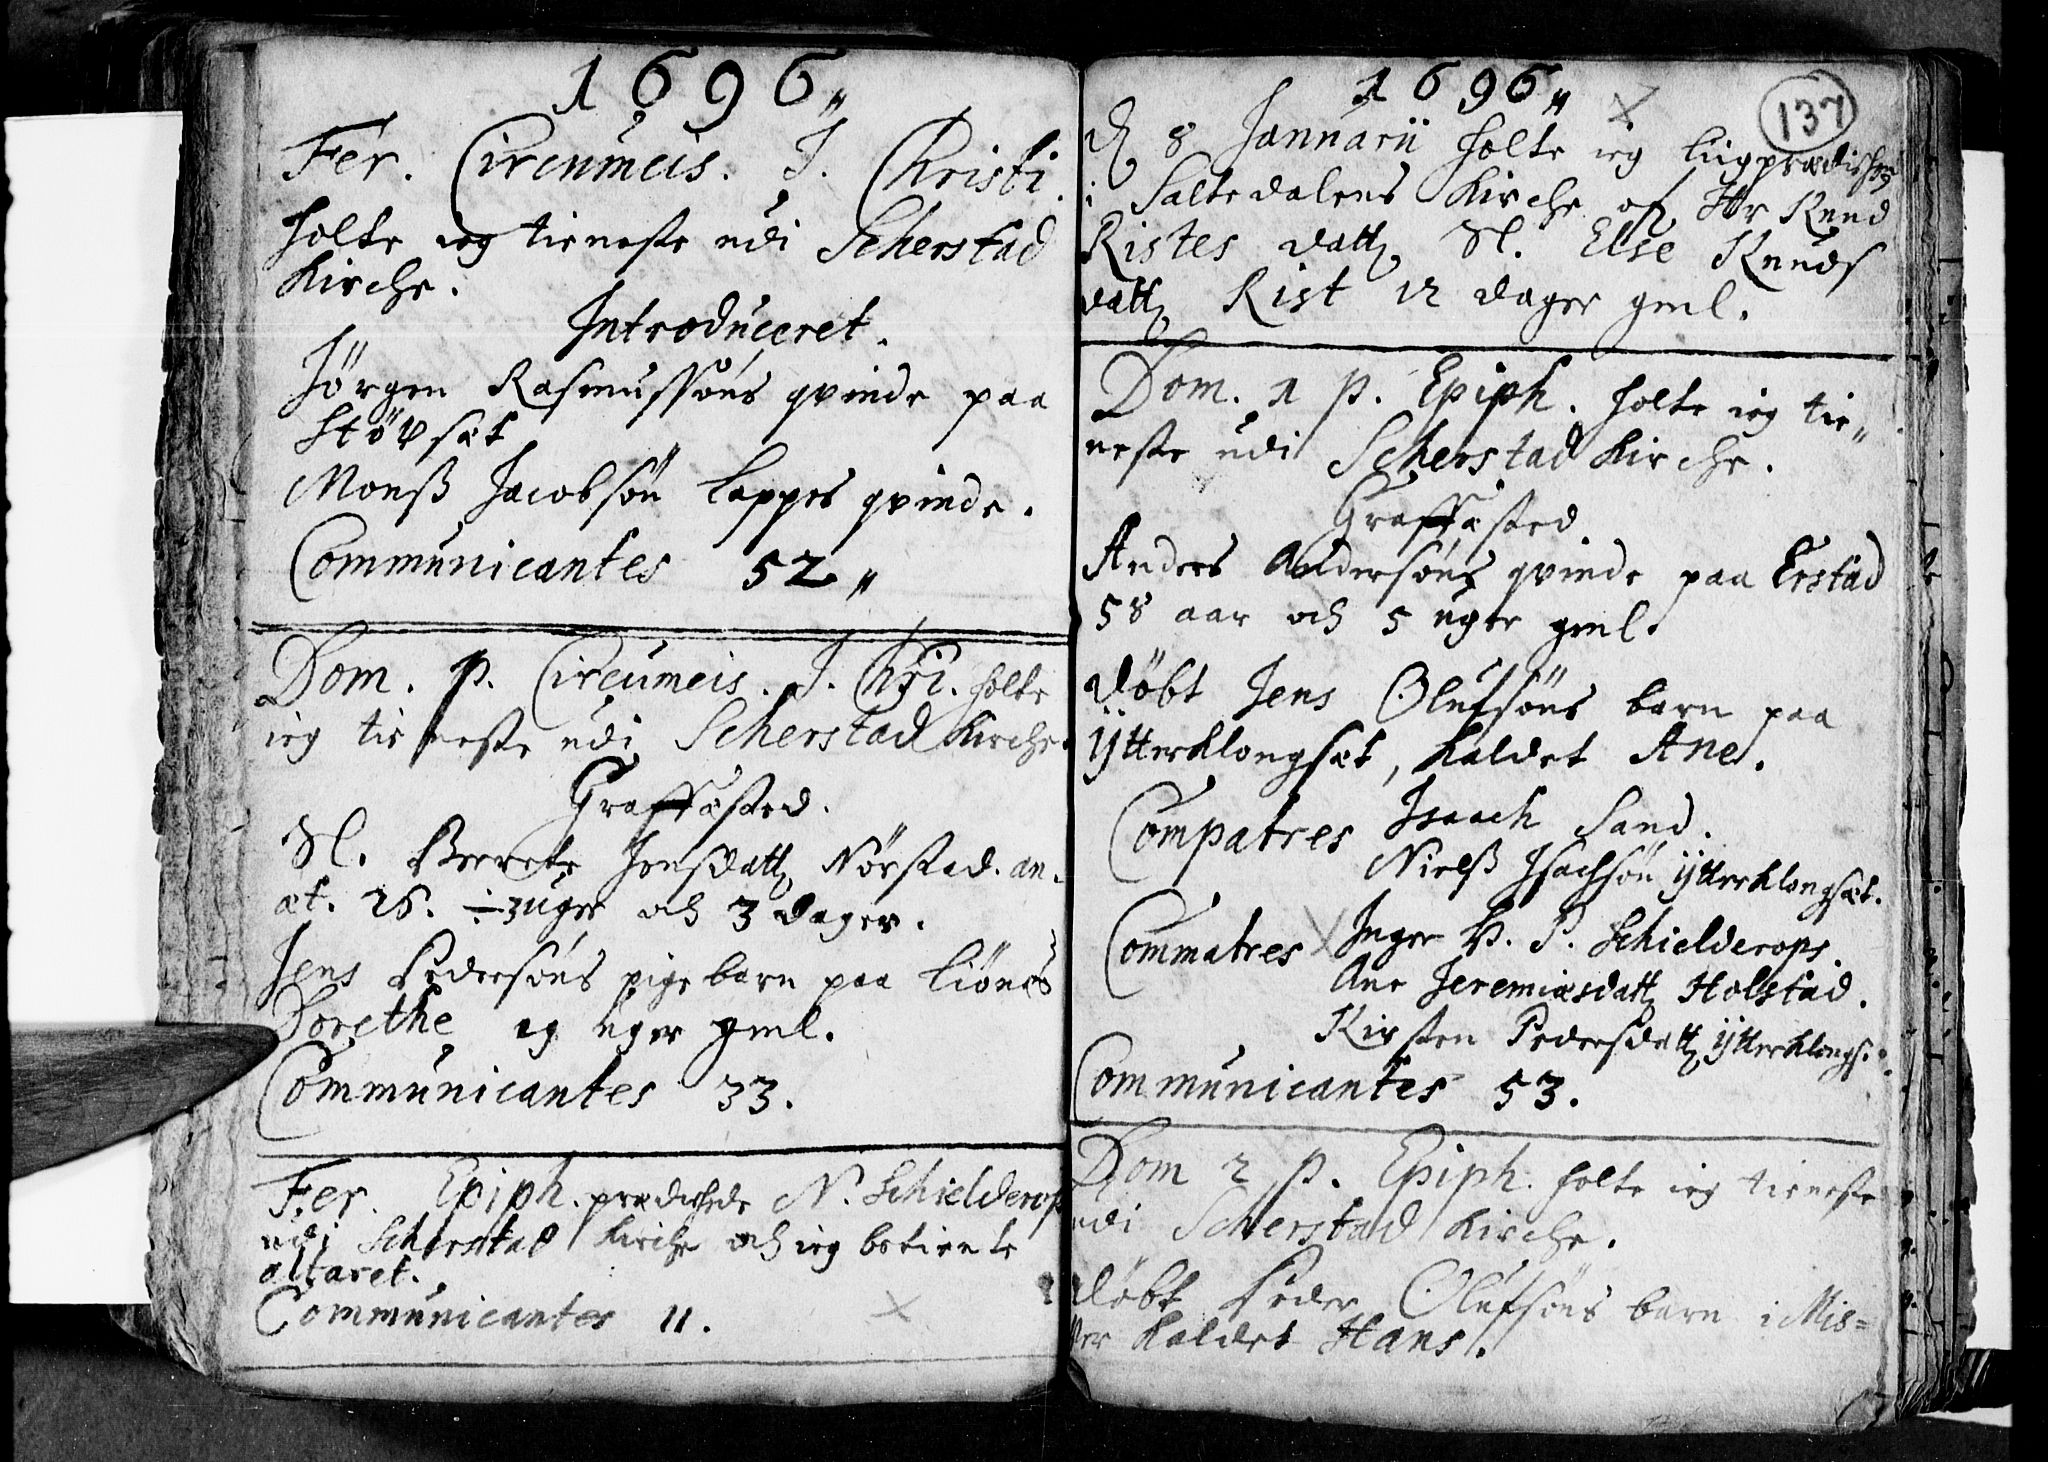 1696
Fer. Circumcis. J. Christi.
holte ieg tieneste udi Scherstad
Kirche.
Introduceret.
Jörgen Rasmussöns qvinde paa
Störset
Monß Jacobsön Lappes qvinde.
Communicantes 52
Dom. p. Circumcis. J. Chri. holte
ieg tieneste udi Scherstad Kirche.
Graffæsted.
Sl. Berete Jensdatt Nörstad. an.
æt. 26. ÷ 3 uger och 3 dager.
Jens Pedersöns pige barn paa Liönes
Dorethe 19 uger gml.
Communicantes 33.
Fer. Epiph. prædichede N. Schielderop
udi Scherstad Kirche och ieg betiente
altaret.
Communicantes 11.
1696
137
d 8 Januarii holte ieg liigprædichen
i Saltedalens Kirche of Hr Knud
Ristes datt Sl. Else Knuds
datt Rist 12 dager gml.
Dom. 1 p. Epiph. holte ieg tie
neste udi Scherstad Kirche.
Graffæsted
Anders Andersöns qvinde paa Erstad
58 aar och 5 uger gml.
döbt Jens Olufsöns barn paa
Ytterklongset, kaldet Ane.
Compatres Isaach Sand.
Nielß Isachsön ÿtterklongset.
Commatres Inger H. P. Schielderops.
Ane Jeremiæsdatt Holstad.
Kirsten Pedersdatt ÿtterklongs.
Communicantes 53.
Dom 2 p. Epiph. holte ieg tieneste
udi Scherstad Kirche.
döbt Peder Olufsöns barn i Mis=
vær kaldet Hans.